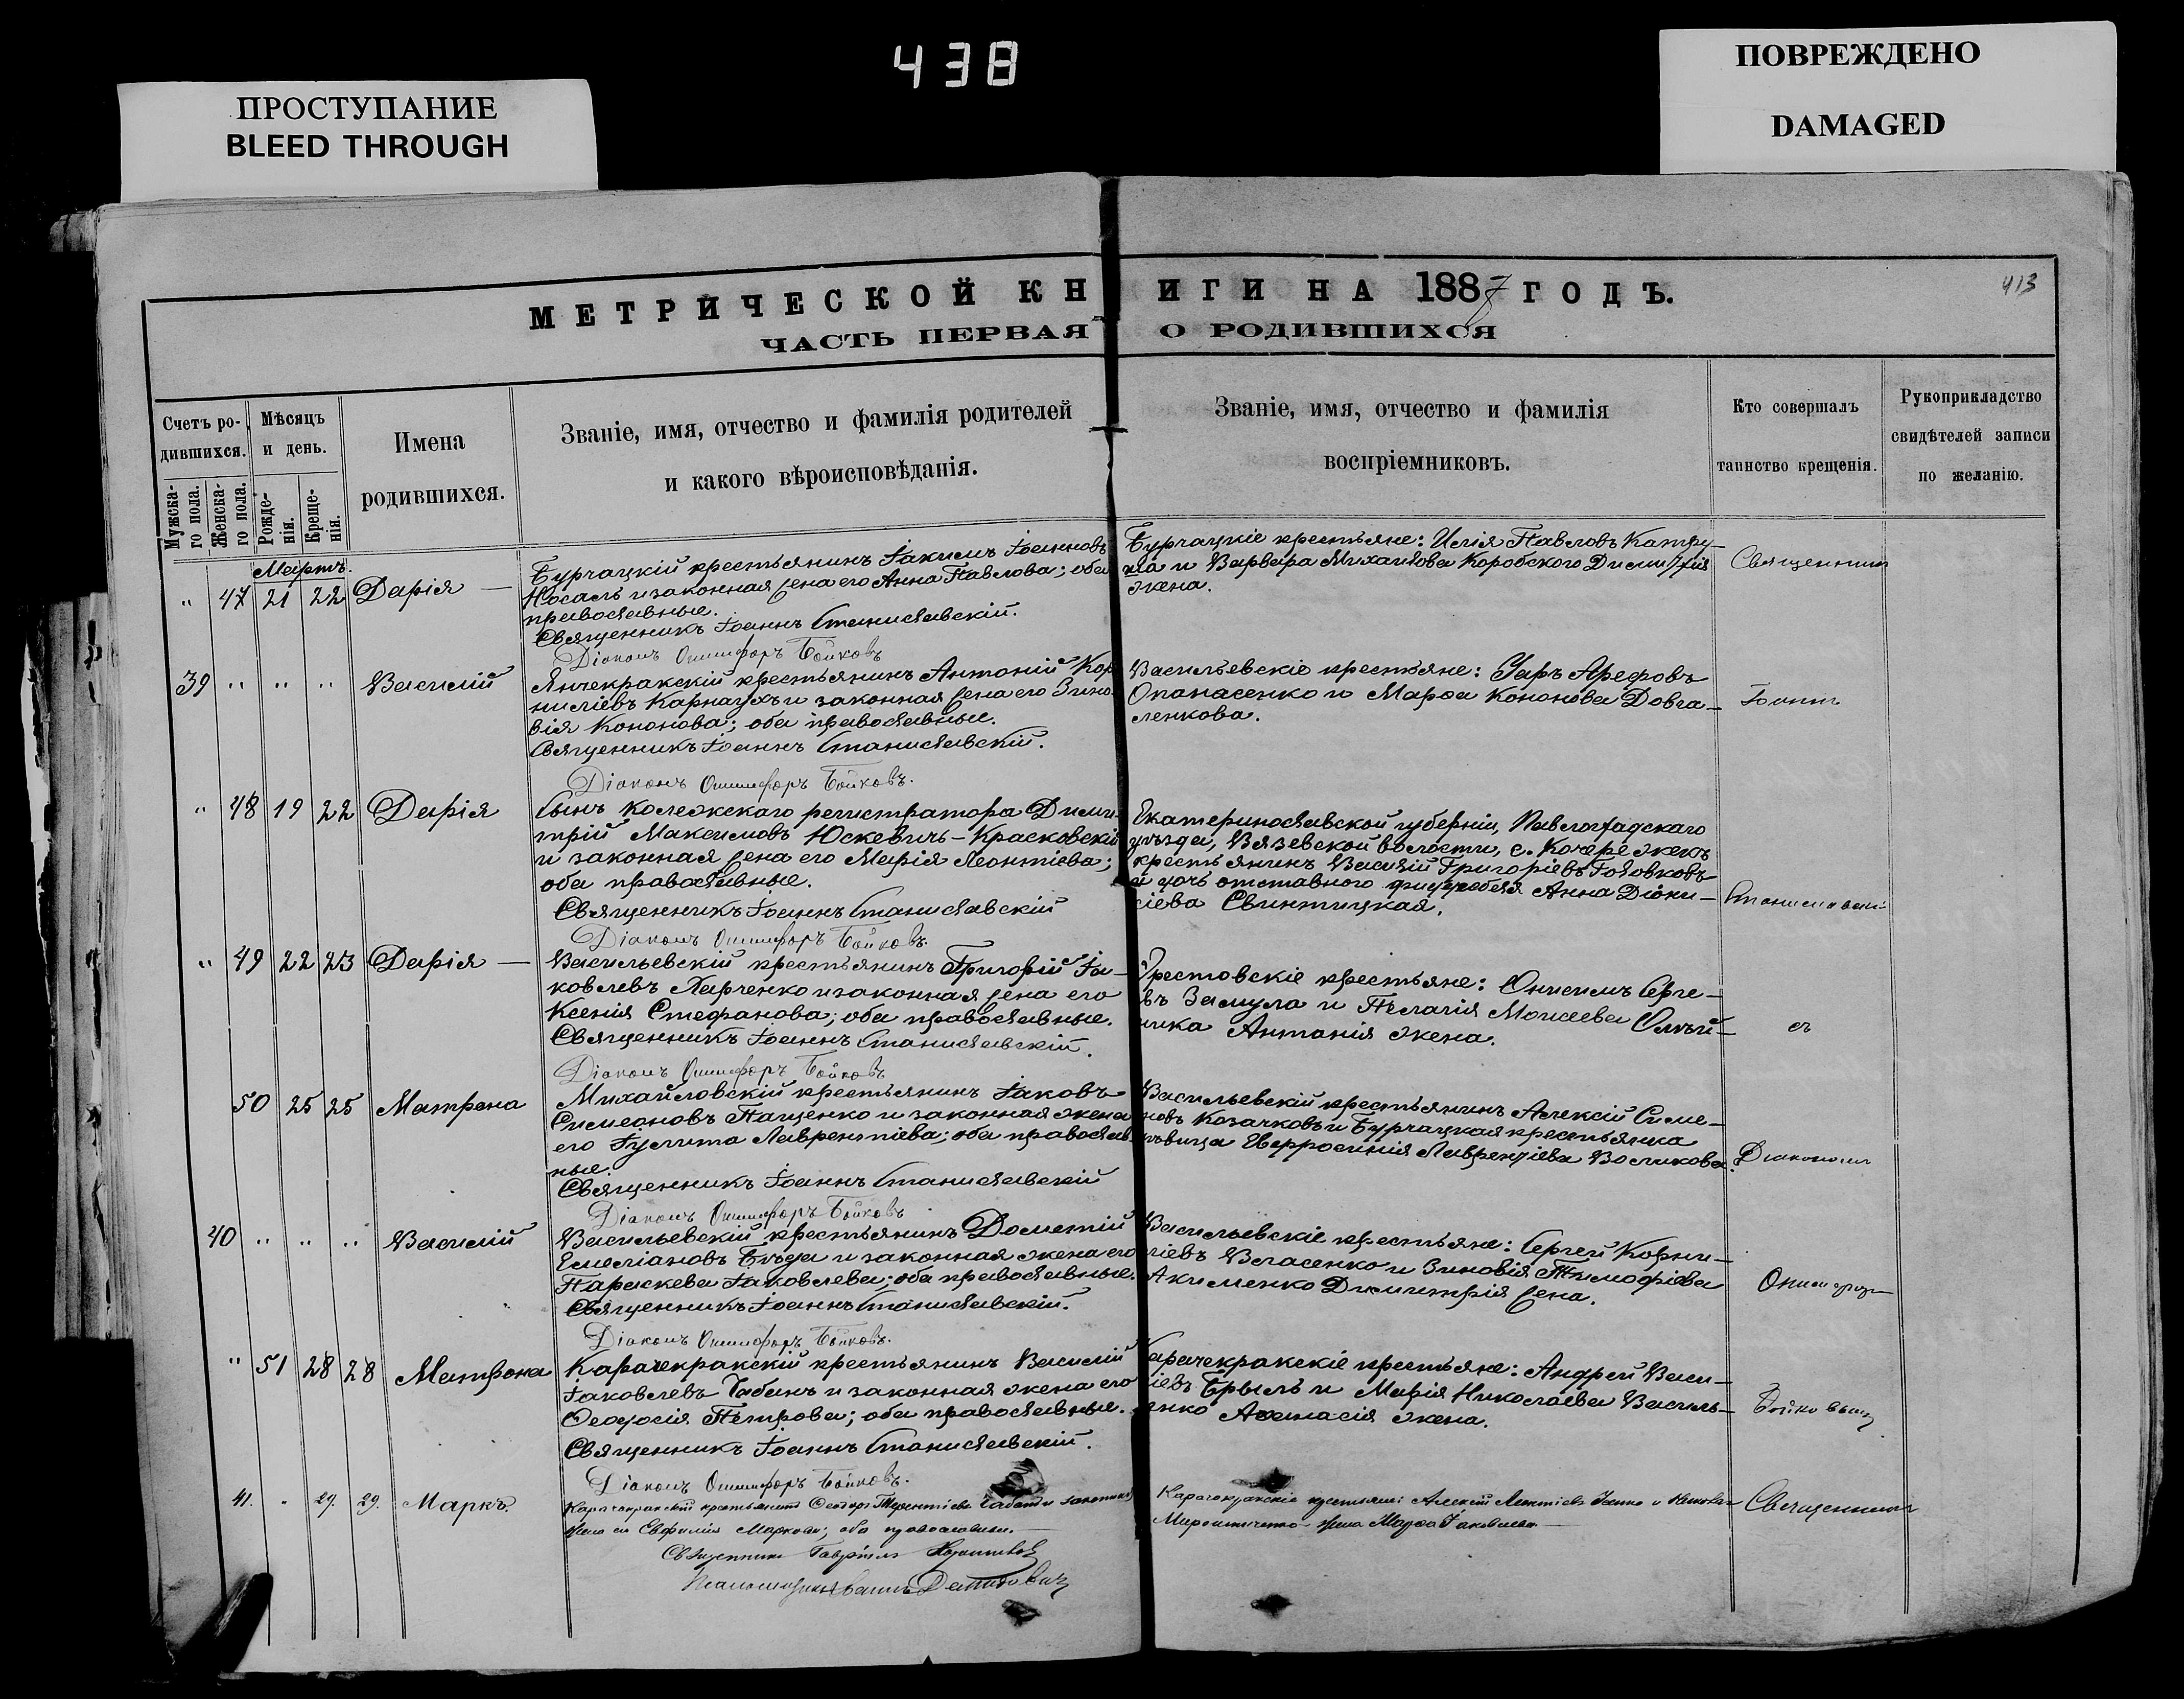 438
ПРОСТУПАНИЕ
BLEED THROUGH
ПОВРЕЖДЕНО
DAMAGED
413
МЕТРИЧЕСКОЙ КНИГИ НА 1887 ГОДЪ.
ЧАСТЬ ПЕРВАЯ О РОДИВШИХСЯ
Счетъ ро-
дившихся.
Мужска-
го пола.
Женска-
го пола.
Мѣсяцъ
и день.
Рожде-
нія.
Креще-
нія.
Имена
родившихся.
Званіе, имя, отчество и фамилія родителей
и какого вѣроисповѣданія.
Званіе, имя, отчество и фамилія
воспріемниковъ.
Кто совершалъ
таинство крещенія.
Рукоприкладство
свидѣтелей записи
по желанію.
Мартъ.
" 47 21 22 Дарія —
Бурчацкій крестьянинъ Іакимъ Іоанновъ
Носаль и законная жена его Анна Павлова; оба
православные.
Священникъ Іоаннъ Станиславскій.
Діаконъ Онисифоръ Бойковъ
Бурчацкіе крестьяне: Илія Павловъ
и Варвара Михайлова Коробского Димитрія
жена.
Священникъ
39 " " " Василій
Янчекракскій крестьянинъ Антоній Кор
ниліевъ Карнаухъ и законная жена его Зино-
вія Кононова; оба православные.
Священникъ Іоаннъ Станиславскій.
Діаконъ Онисифоръ Бойковъ.
Васильевскіе крестьяне: Уаръ Арефовъ
Опанасенко и Марѳа Кононова Довга-
ленкова.
Іоаннъ
" 48 19 22 Дарія
Сынъ колежскаго регистратора Дими-
трій Максимовъ Юскевичъ-Красковскій
и законная жена его Марія Леонтіева;
оба православные.
Священникъ Іоаннъ Станиславскій
Діаконъ Онисифоръ Бойковъ.
Екатеринославской губерніи, Павлоградскаго
уѣзда, Вязевской волости, с. Кочережекъ
крестьянинъ Василій Григоріевъ Головковъ
и дочь отставного Анна Діони-
сіева Свинтицкая.
" 49 22 23 Дарія —
Васильевскій крестьянинъ Григорій Іа-
ковлевъ Ларченко и законная жена его
Ксенія Стефанова; оба православные.
Священникъ Іоаннъ Станиславскій.
Діаконъ Онисифоръ Бойковъ
крестьяне: Онисимъ Серге-
въ Замула и Пелагія Моисеева
Антонія жена.
съ
50 25 25 Матрона
Михайловскій крестьянинъ Іаковъ
Симеоновъ Пащенко и законная жена
его Іулитта Лаврентіева; оба православ
ные.
Священникъ Іоаннъ Станиславскій
Діаконъ Онисифоръ Бойковъ
Васильевскій крестьянинъ Алексій Симе-
новъ Козачковъ и Бурчацкая крестьянка
Лаврентіева Воликова.
Діакономъ
40 " " " Василій
Васильевскій крестьянинъ Дометій
Емеліановъ Бѣда и законная жена его
Параскева Іаковлева; оба православные.
Священникъ Іоаннъ Станиславскій.
Діаконъ Онисифоръ Бойковъ.
Васильевскіе крестьяне: Сергей Корни-
ліевъ Власенко и Зиновія Тимофіева
Акименко Димитрія жена.
" 51 28 28 Матрона
Карачекракскій крестьянинъ Василій
Іаковлевъ Чабанъ и законная жена его
Ѳеодосія Петрова; оба православные.
Священникъ Іоаннъ Станиславскій.
Діаконъ Онисифоръ Бойковъ.
Карачекракскіе крестьяне: Андрей Васи-
ліевъ Брыль и Марія Николаева Василь-
енко Аѳанасія жена.
Бойковымъ
41. " 29. 29. Маркъ.
Карачекракскій крестьянинъ Ѳеодоръ Терентіевъ Чабанъ и законная
жена его Евфимія Маркова; оба православные.
Священникъ Гавріилъ
Карачекракскіе крестьяне: Алексій
жена Марѳа Іаковлева
Священникъ